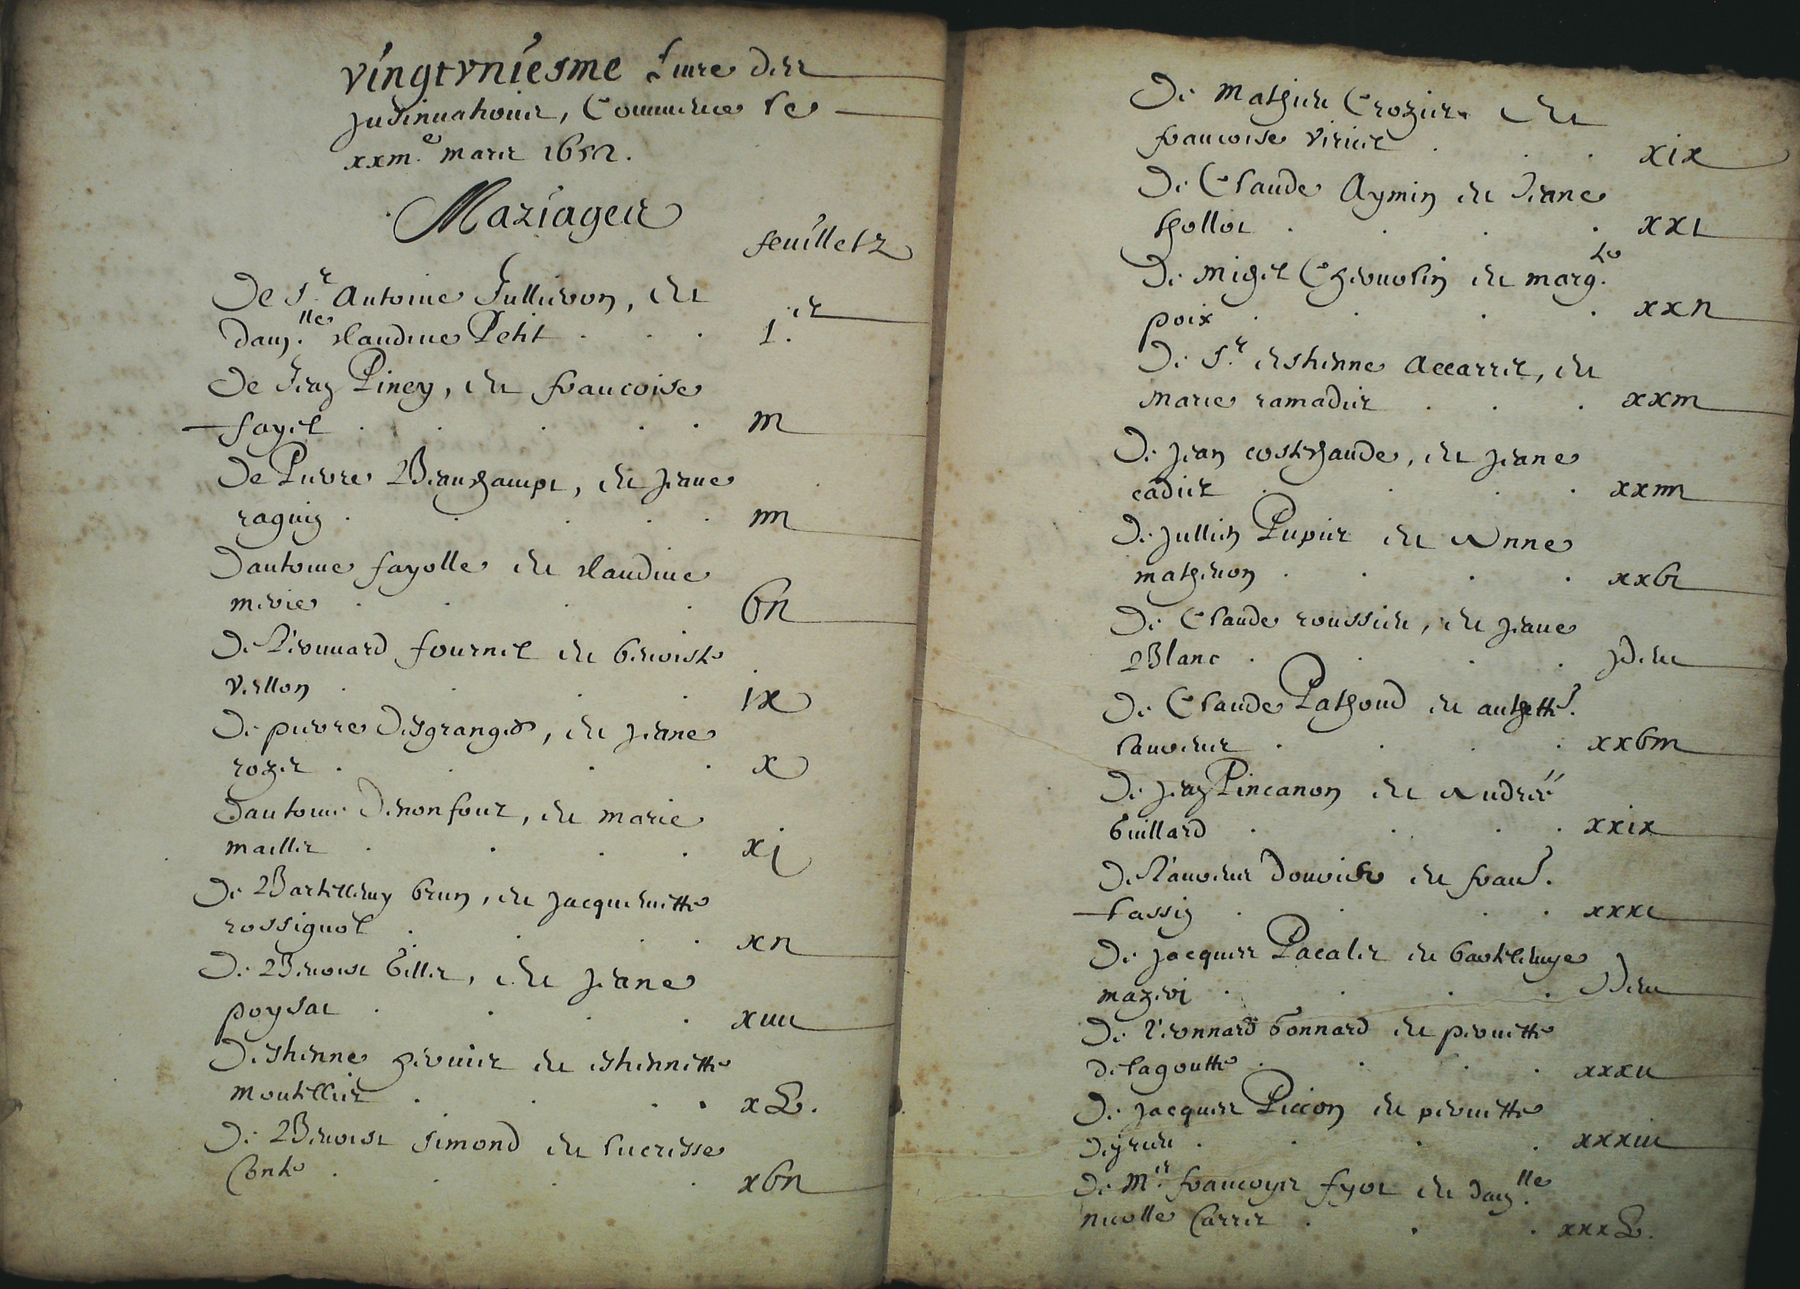 vingtvniesme Liure des
Insinuations, Commence le
xxiii.e mars 1652.
Mariages
feuilletz
De Sr. Antoine Jullieron, et
dam.lle claudine Petit . . . 1.er
De Jean Piney, et francoise
fayel . . . . . iii
De Pierre Beauchampt, et Jeane
raguin . . . . iiii
Dantoine fayolle et claudine
merie . . . . vii
De Leonnard fournel et benoiste
viallon . . . . ix
De pierre Desgranges, et Jeane
rozet . . . . x
Dantoine Denonfour, et marie
maillet . . . . xj
De Bartellemy brun, et Jacquemette
rossignol . . . . xii
De Benoist Gillet, et Jeane
poysat . . . . xiiii
Destienne et estiennette
montellier . . . . xv.
De Benoist Simond et lucresse
Conte . . . . xvii
De Mathieu Crozier et
francoise virieu . . . xix
De Claude Aymin et Jeane
thollot . . . . xxi
De Migel Chevrolin et marg.te
poix . . . . xxii
De Sr. estienne Accarier, et
Marie ramadier . . . xxiii
De Jean costechaude, et Jeane
cadier . . . . xxiiii
De Jullien Pupier et Anne
mathevon . . . . xxvi
De Claude roussieu, et Jeane
Blanc . . . . Idem
De Claude Pathoud et anthette
. . . . xxviii
De Jean Pincanon et Andrée
Guillard . . . . xxix
De Laurent et fran.
lassin . . . . xxxi
De Jacques Pacalet et bartelemye
mazeri . . . . Idem
De Leonnard bonnard et pierrette
delagoutte . . . . xxxii
De Jacques Picon et pierrette
. . . . xxxiii
De Me. francoys fyot et dam.lle
nicolle Carret . . . xxxv.